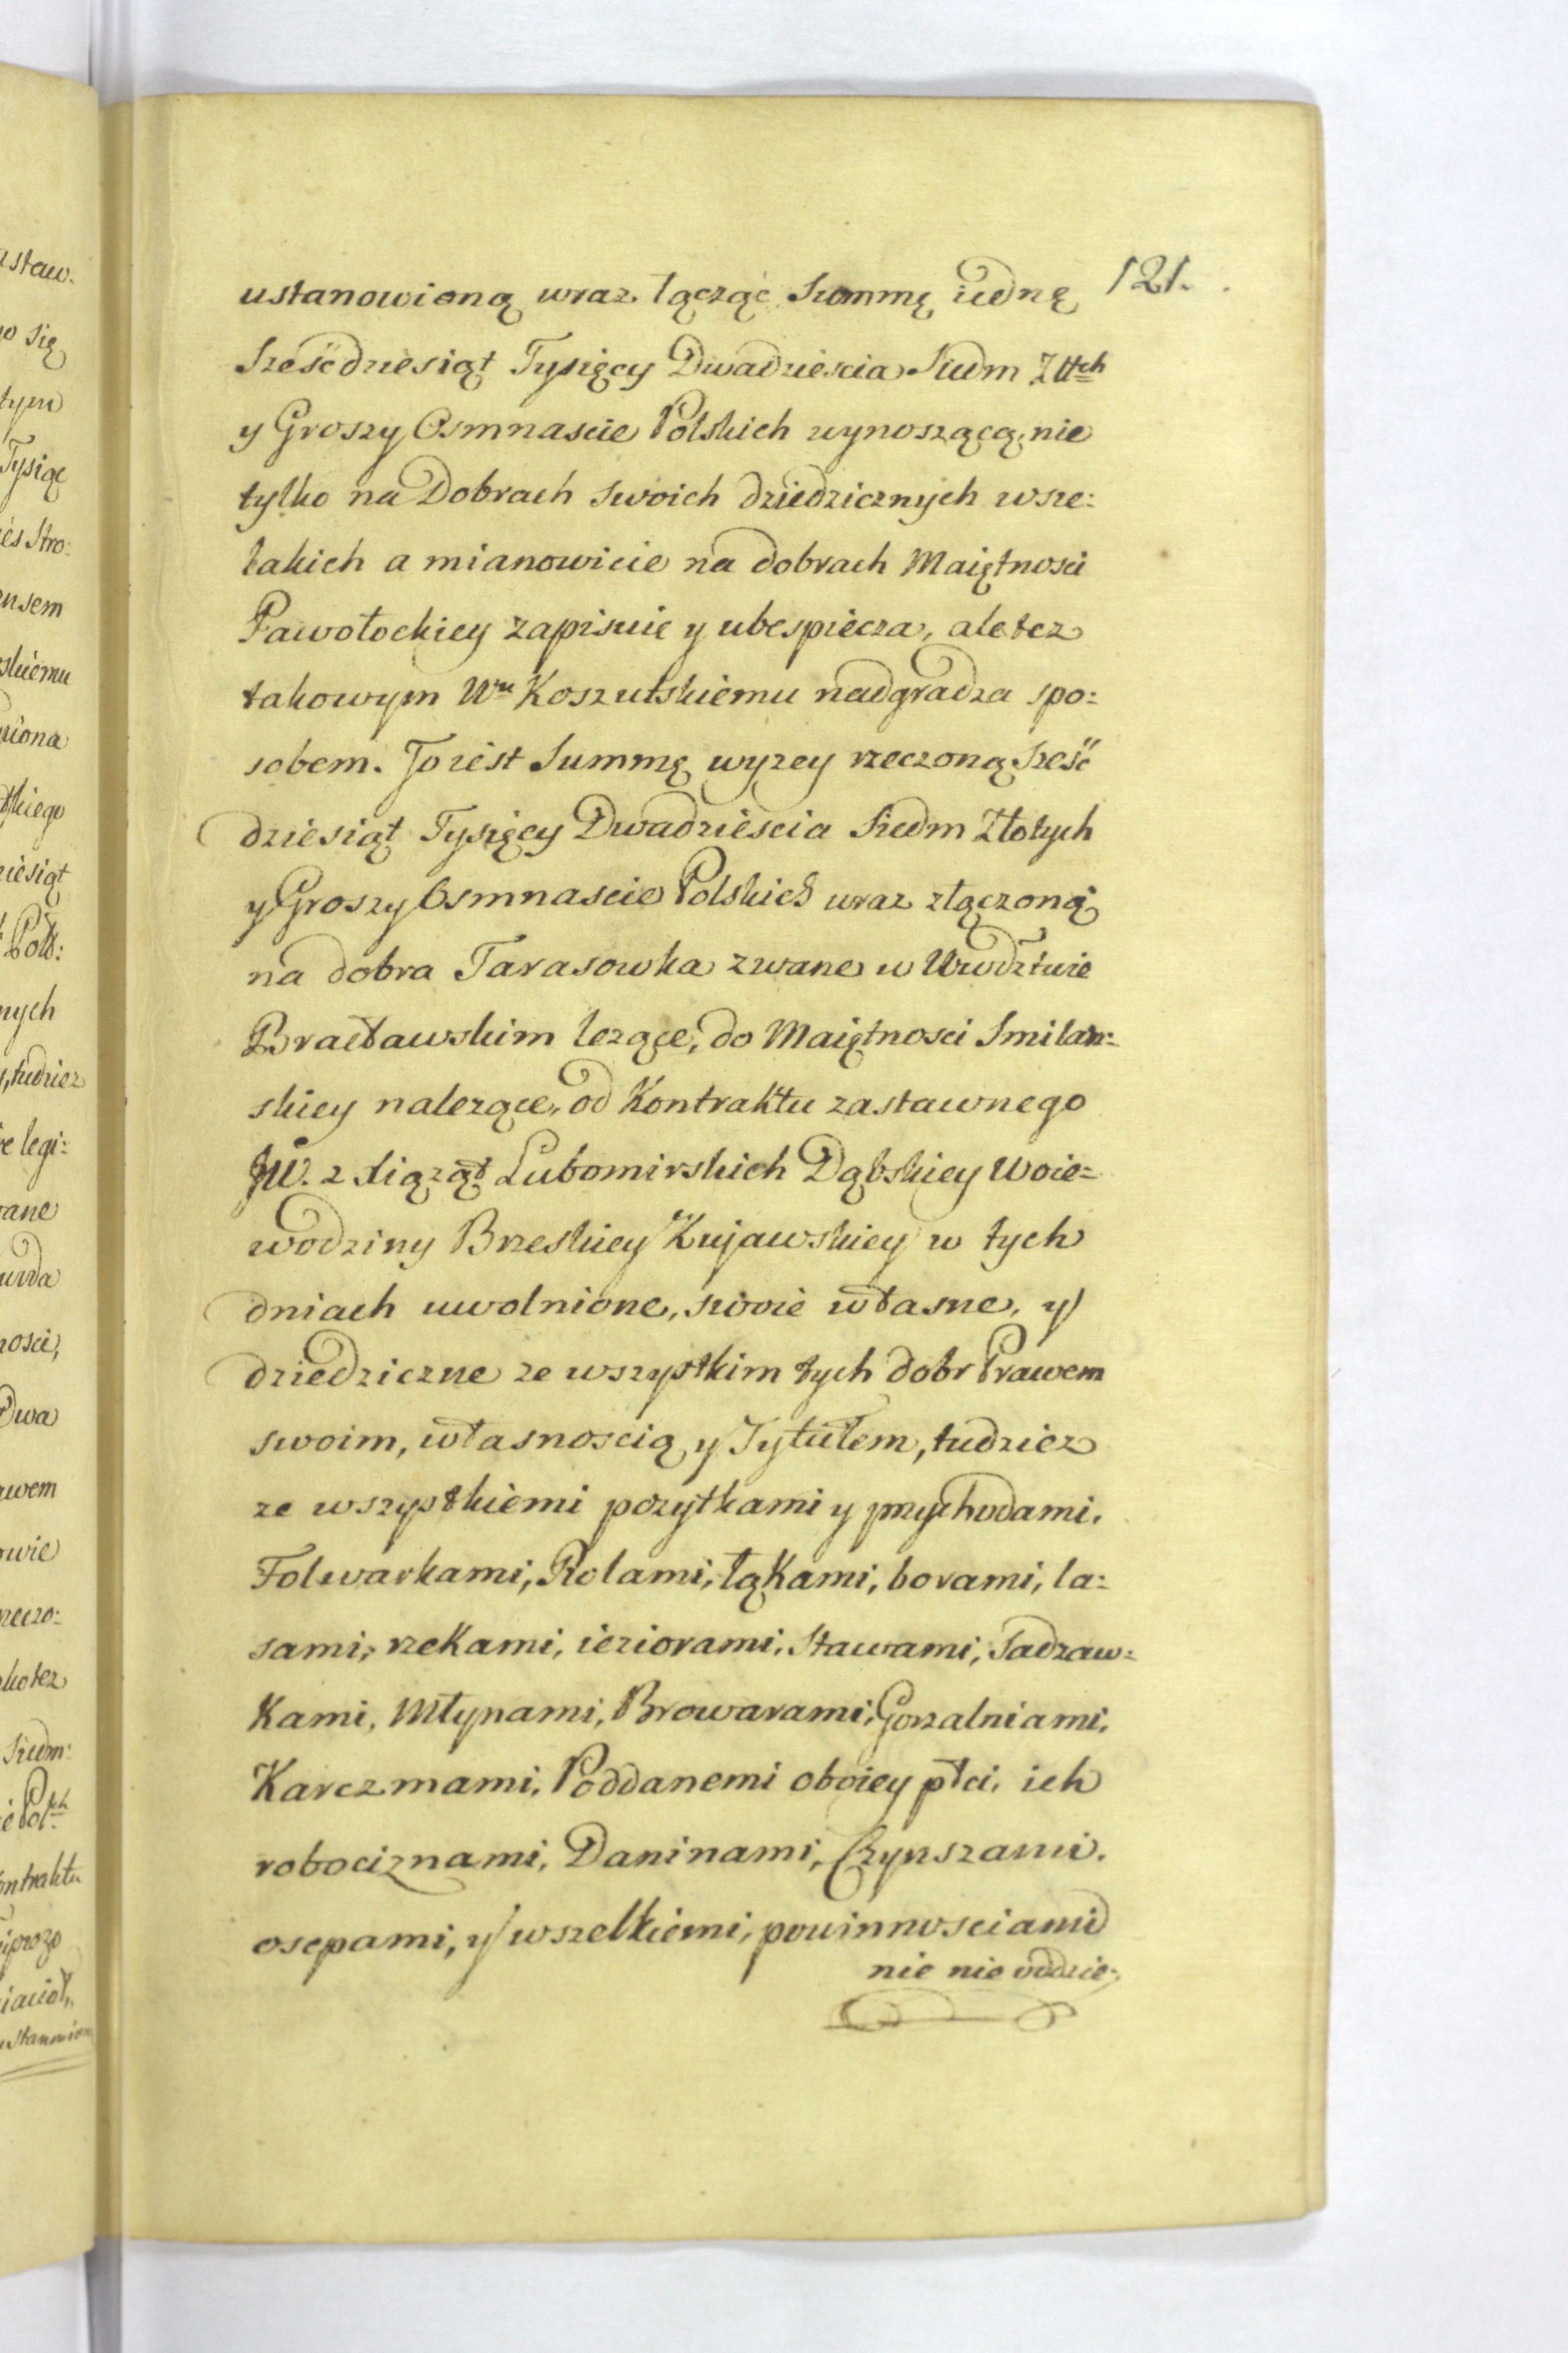 121.
ustanowioną wraz łącząc Summę iednę
Sześćdziesiąt Tysięcy Dwadziescia Siedm Złtch
y Groszy Osmnascie Polskich wynoszącą, nie
tylko na Dobrach swoich dziedzicznych wsze:
lakich a mianowicie na dobrach Maiętnosci
Pawołockiey zapisuie y ubespiecza, ale tez
takowym Wu Koszutskiemu nadgradza spo:
sobem. To iest Summę wyzey rzeczoną Sześć
dziesiąt Tysięcy Dwadziescia Siedm Złotych
y Groszy Osmnascie Polskich wraz złączoną
na dobra Tarasowka zwane w Wwdztwie
Bracławskim lezące, do Maiętnosci Smilan:
skiey nalezące, od Kontraktu zastawnego
JW. z Xiąząt Lubomirskich Dąbskiey Woie=
wodziny Brzeskiey Kujawskiey w tych
dniach uwolnione, swoie własne, y
dziedziczne ze wszystkim tych dobr Prawem
swoim, własnoscią y Tytułem, tudziez
ze wszystkiemi pozytkami y przychodami,
Folwarkami, Rolami, łąkami, borami, la:
sami, rzekami, ieziorami, Stawami, Sadzaw:
kami, Młynami, Browarami, Gorzalniami,
Karczmami, Poddanemi oboiey płci, ich
robociznami, Daninami, Czynszami,
osepami, y wszelkiemi, powinnosciami
nic nie oddzie: